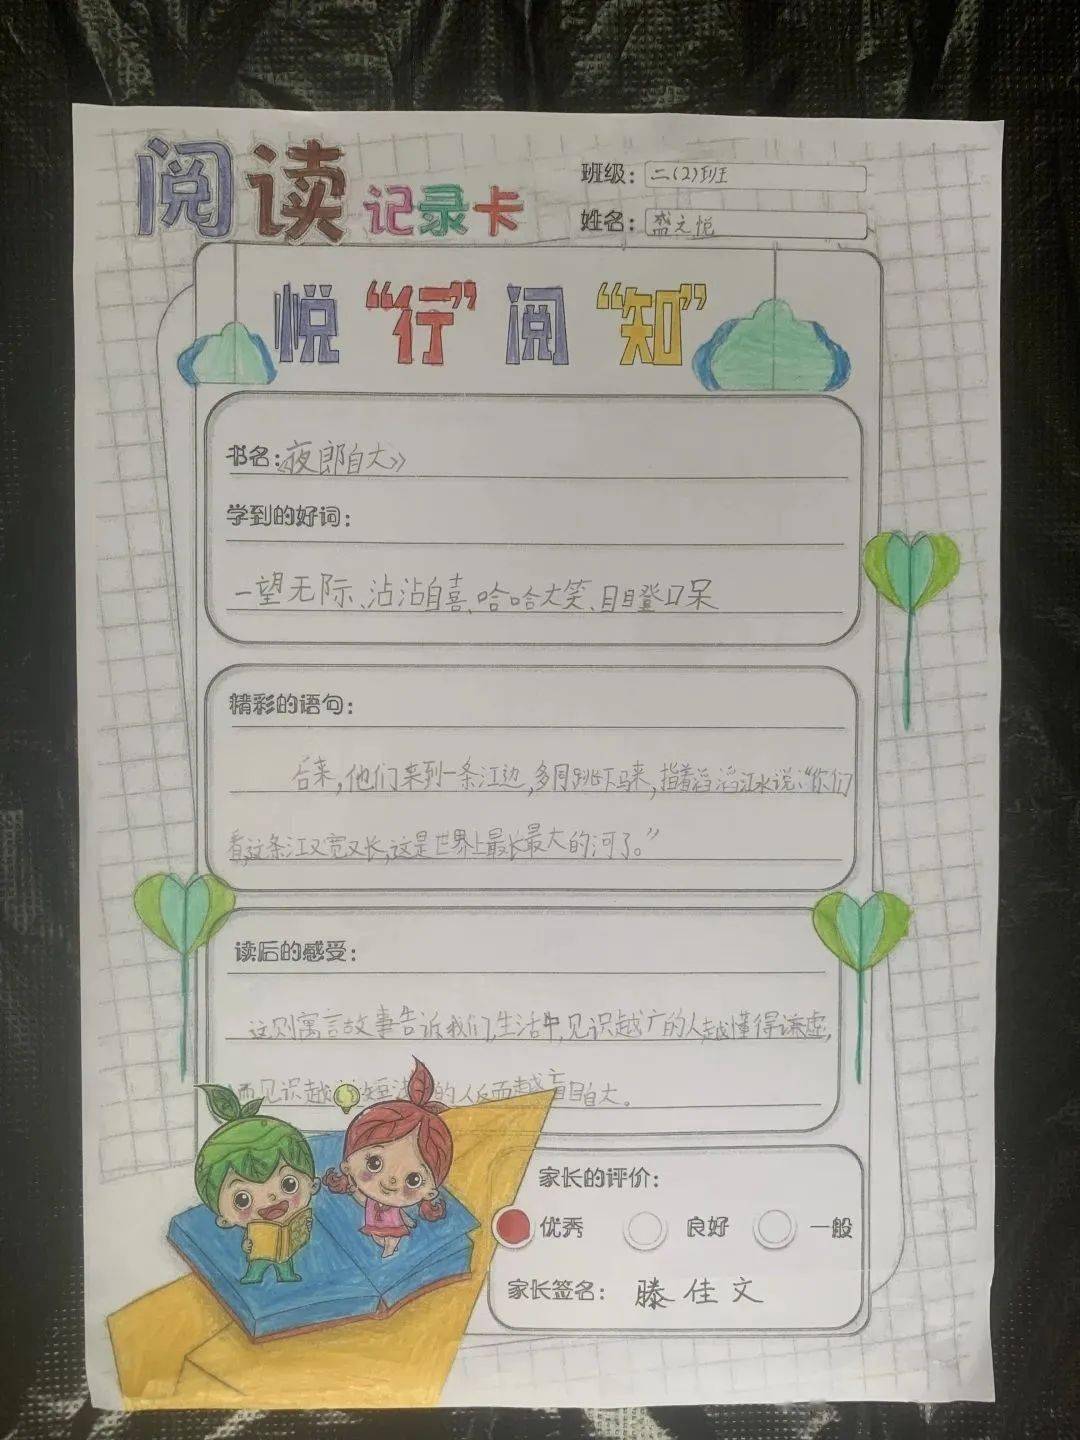 阅读记录卡
班级：二(2)班
姓名：盛之悦
悦“行”阅“知”
书名：《夜郎自大》
学到的好词：
一望无际、沾沾自喜、哈哈大笑、目瞪口呆
精彩的语句：
后来，他们来到一条江边，多同跳下马来，指着滔滔江水说：“你们
看，这条江又宽又长，这是世界上最长最大的河了。”
读后的感受：
这则寓言故事告诉我们，生活中，见识越广的人越懂得谦虚，
而见识越 短浅的人反而越盲目自大。
家长的评价：
优秀 良好 一般
家长签名：滕佳文